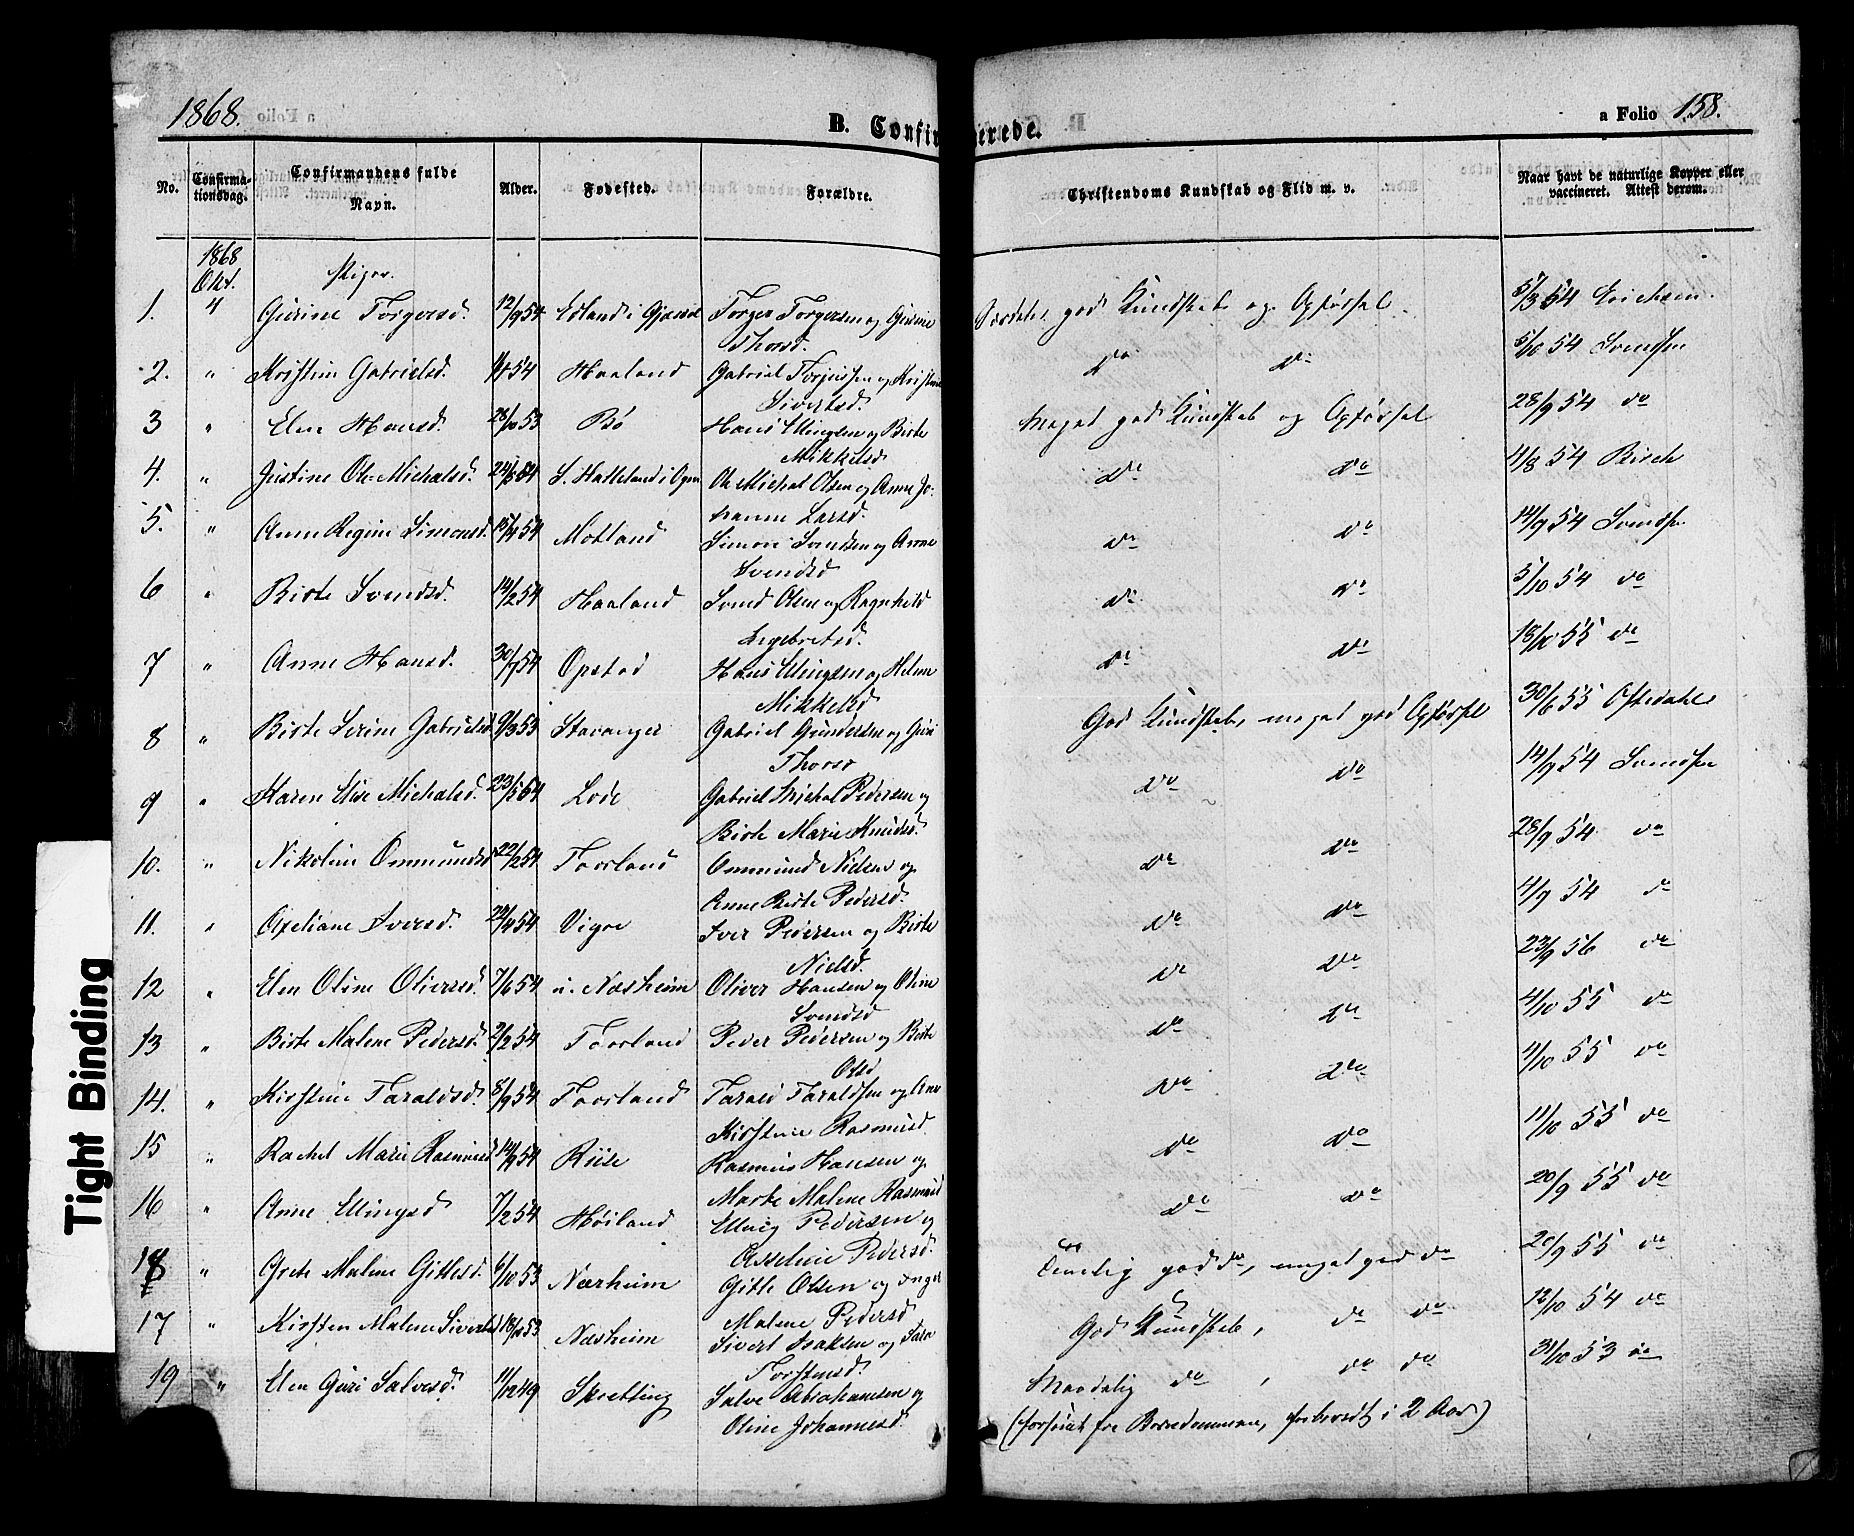 1868.
B. Confirmerede.
a Folio 158.
No. Confirmationsdag. Confirmandens fulde Navn. Alder. Fødested. Forældre. Christendoms Kundskab og Flid m. v. Naar havt de naturlige Kopper eller vaccineret. Attest derom.
1868
Okt. Piger.
1. 4 Gurine Torgersd. 12/9 54 Torger Torgersen og Gurine Thorsd. Særdeles god Kundskab og Opførsel. 5/3 54 Erichsen.
2. " Kristine Gabrielsd. Haaland Gabriel Torjussen og Kristine Sivertsd. do do 5/10 54 Svendsen
3 " Elen Hansd. 28/10 53 Bø Hans Ellingsen og Birte Mikkelsd Meget god Kundskab og Opførsel 28/9 54 do
4. " Justine Ole-Michalsd. S. Halleland i Ogne Ole Michal Olsen og Anne Johanne Larsd. do do 11/8 54 Birch
5. " Anne Regine Simonsd. 15/4 54 Motland Simon Svendsen og Anne Svendsd do do 14/9 54 Svendsen
6 " Birte Svendsd. 14/2 54 Haaland Svend Olsen og Ragnhild Ingebretsd. do do 5/10 54 do
7 " Anne Hansd. 30/7 54 Opstad Hans Ellingsen og Helene Mikkelsd do do 18/10 55 do
8 " Birte Serine Gabrielsd 9/3 53 Stavanger Gabriel Gundersen og Guri Thorsd God Kundskab, meget god Opførsel 30/6 55 Oftedahl
9 " Karen Elise Michalsd. 23/5 54 Lode Gabriel Michal Pedersen og Birte Marie Knudsd. do do 14/9 54 Svendsen
10. " Nikoline Ommundsd 22/2 54 Torland Ommund Nielsen og Anne Birte Pedersd. do do 28/9 54 do
11. " Axeliane Iversd. Vigre Iver Pedersen og Birte Nielsd. do do 4/9 54 do
12 " Elen Oline Oliversd. 7/6 54 u. Nærheim Oliver Hansen og Oline Svendsd do do 23/9 56 do
13 " Birte Malene Pedersd. 2/2 54 Torland Peder Pedersen og Birte Olsd do do 4/10 55 do
14. " Kirstine Taraldsd. 8/9 54 Torland Tarald Taraldsen og Ane Kirstine Rasmusd. do do 11/10 55 do
15 " Rachel Marie Rasmusd 14/9 54 Riise Rasmus Hansen og Marte Malene Rasmusd do do 11/10 55 do
16 " Anne Ellingsd 7/2 54 Høiland Elling Pedersen og Asseline Pedersd. do do 20/9 55 do
18 " Grete Malene Gitlesd. 6/10 53 Nærheim Gitle Olsen og Inger Malene Pedersd Temelig god do, meget god do 20/9 55 do
17 " Kirsten Malene Sivertsd Nærheim Sivert Isaksen og Torstensd. God Kundskab, do do 12/10 54 do
19 " Elen Guri Salvesd. 11/12 49 Skretting Salve Abrahamsen og Oline Johannesd. Maadelig do, do do 31/10 53 do
i 2 Aar)
Tight Binding